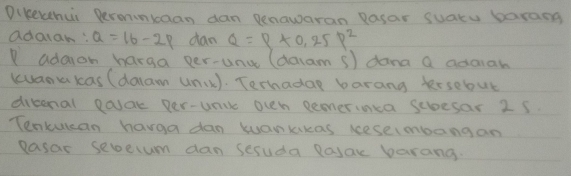 Diketahui Permintaan dan Penawaran Pasar suatu barang
adalah : Q = 16 - 2P dan Q = P + 0,25 P²
P adalah harga Per-unit (dalam $) dana Q adalah
kuantitas (dalam unit). Terhadap barang tersebut
dikenai Pajak Per-unit oleh Pemerinta sebesar 2 $.
Tentukan harga dan kuantitas keseimbangan
Pasar sebelum dan sesuda Pajak barang.